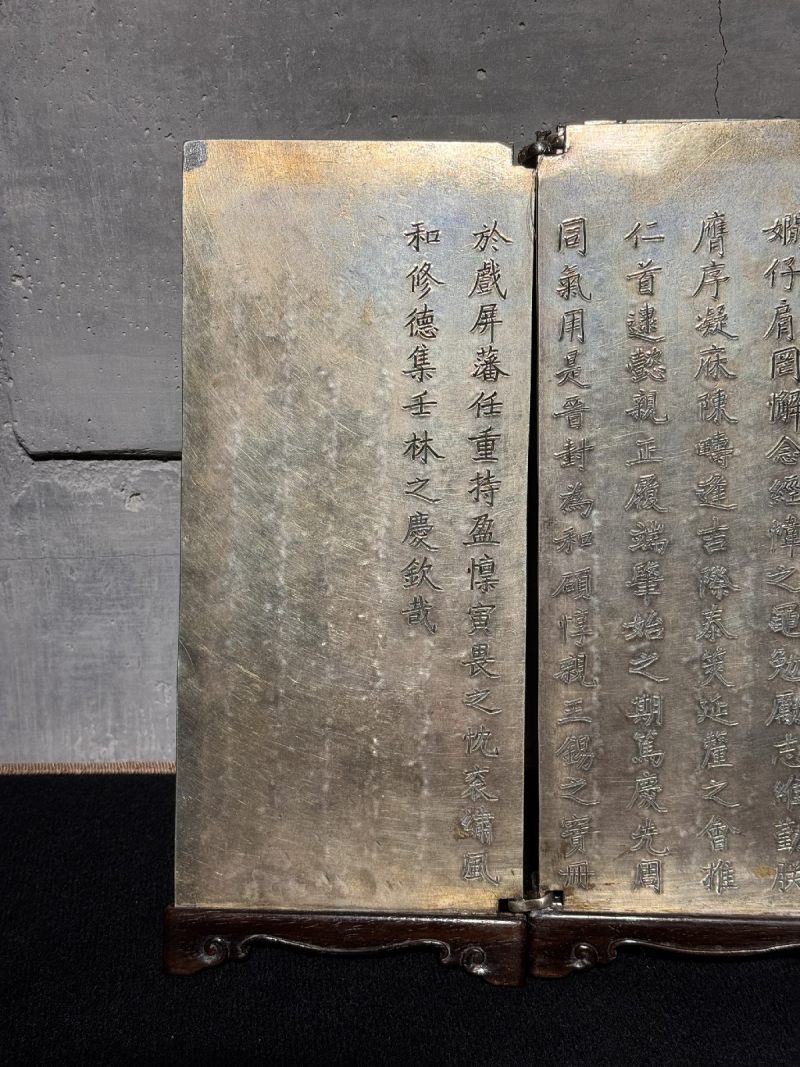 嫺仔肩罔懈念經幃之黽勉勵志維勤朕
膺序凝庥陳疇逢吉際泰筴延釐之會推
仁首逮懿親正履端肇始之期篤慶先周
同氣用是晉封為和碩惇親王錫之寶冊
於戲屏藩任重持盈懍寅畏之忱袞繡風
和修德集壬林之慶欽哉